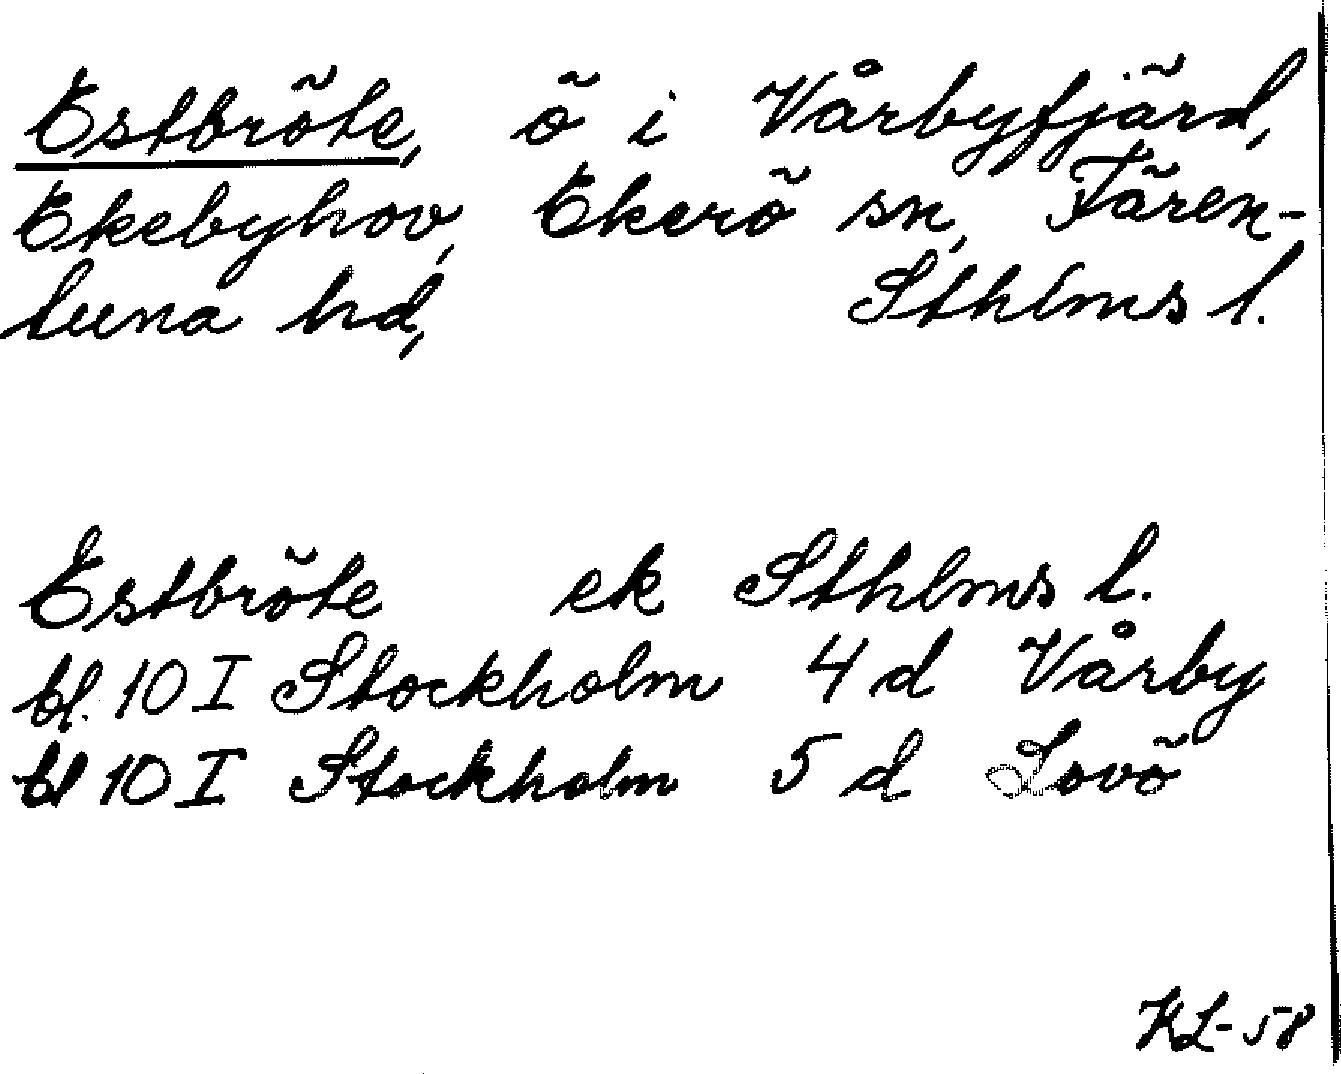 Estbröte, ö i Vårbyfjärd,
Ekebyhov, Ekerö sn, Fären-
tuna hd, Sthlms l.
Estbröte ek Sthlms l.
bl. 10 I Stockholm 4 d Vårby
bl 10 I Stockholm 5 d Lovö
KL-58